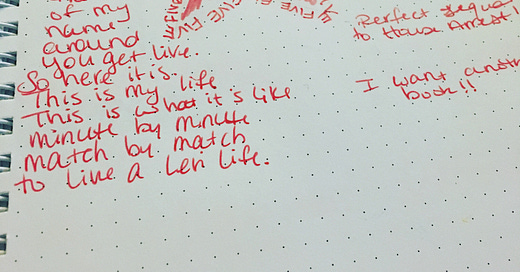 of my
name
around
you get live.
So here it is.
This is my life
This is what it's like
minute by minute
match by match
to live a Len life.
FIVE FIVE
Perfect
to House Arrest!
I want
book!!